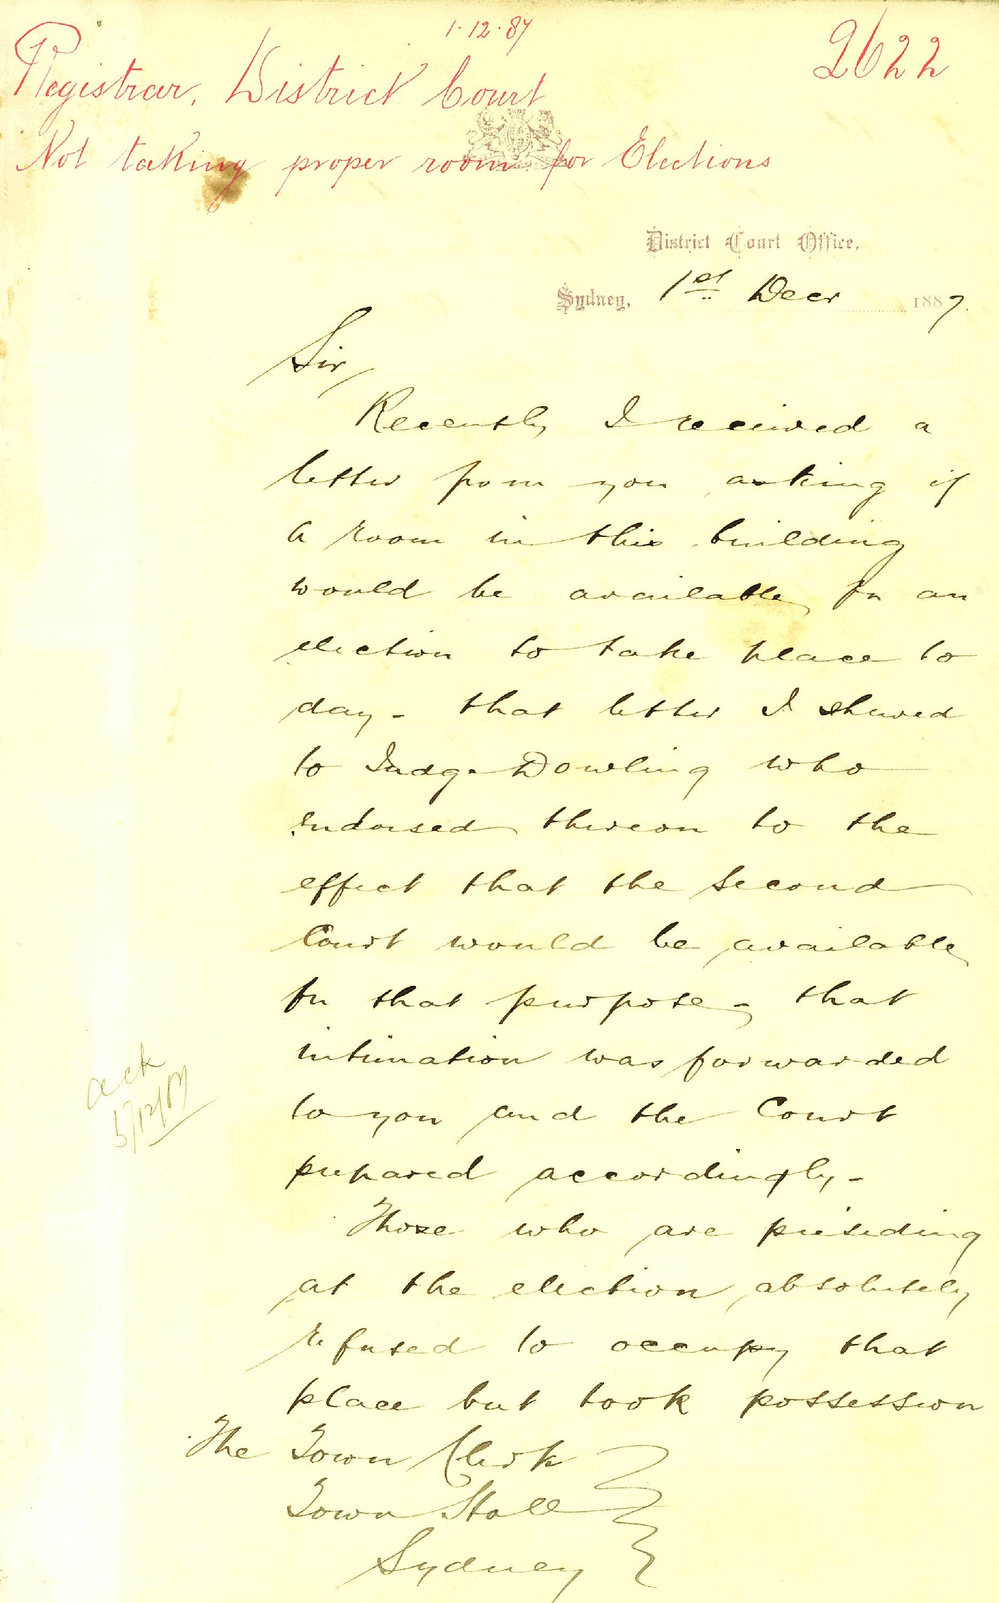 1.12.87
2622
Registrar, District Court
Not taking proper room for Elections
District Court Office,
Sydney, 1st Decr 1887.
Sir,
Recently I received a
letter from you asking if
a room in this building
would be available for an
election to take place to
day - that letter I shewed
to Judge Dowling who
endorsed thereon to the
effect that the Second
Court would be available
for that purpose - that
intimation was forwarded
to you and the Court
prepared accordingly -
ack
5/12/87
Those who are presiding
at the election absolutely
refused to occupy that
place but took possession
The Town Clerk
Town Hall
Sydney